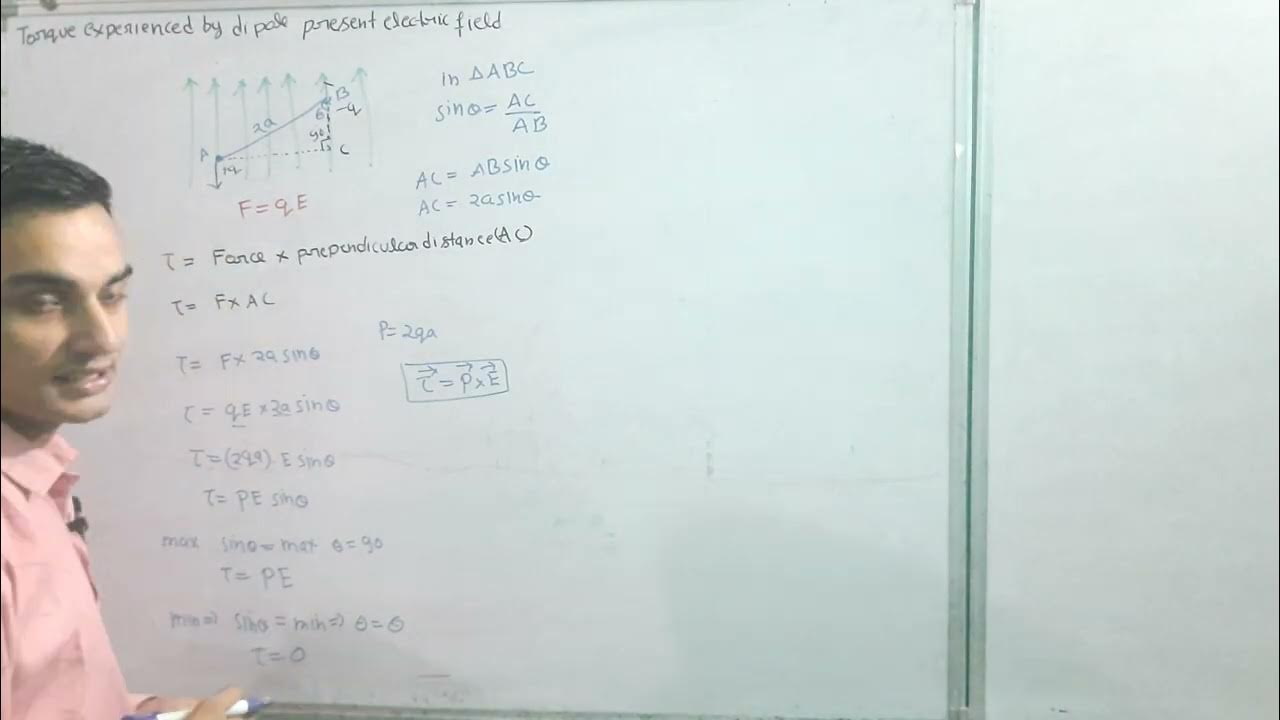 Torque experienced by dipole present electric field
B
-q
2a
θ
90
A
C
+q
F = qE
in ΔABC
sinθ = AC
AB
AC = ABsinθ
AC = 2asinθ
τ = Force × prependicular distance(AC)
τ = F×AC
τ = F×2asinθ
P=2qa
τ⃗ = P⃗×E⃗
τ = qE ×2a sinθ
τ=(2qa). E sinθ
τ= PE sinθ
max sinθ=max θ=90
τ= PE
min⇒ sinθ = min⇒ θ=θ
τ=0